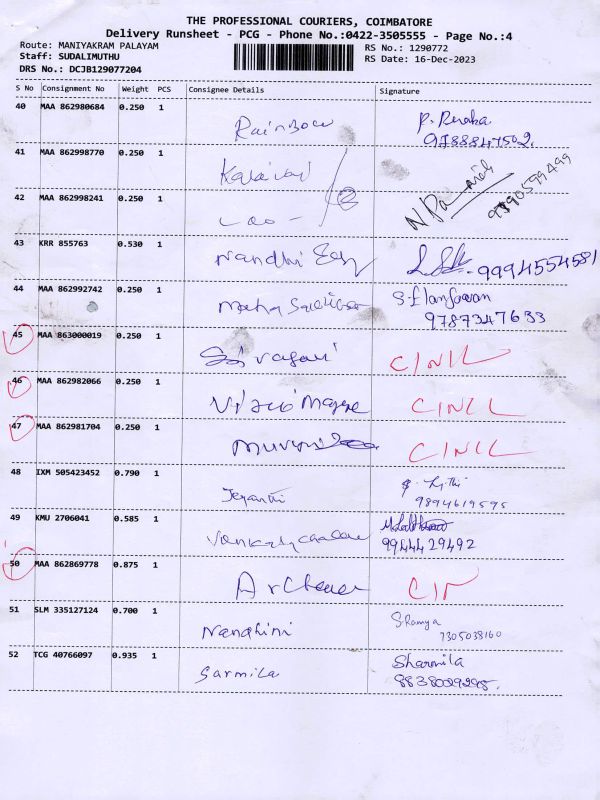 THE PROFESSIONAL COURIERS, COIMBATORE
Delivery Runsheet - PCG - Phone No.:0422-3505555 - Page No.:4
Route: MANIYAKRAM PALAYAM RS No.: 1290772
Staff: SUDALIMUTHU RS Date: 16-Dec-2023
DRS No.: DCJB129077204
S No Consignment No Weight PCS Consignee Details Signature
40 MAA 862980684 0.250 1
Rainbow P. Renuka
9788847502
41 MAA 862998770 0.250 1
42 MAA 862998241 0.250 1
43 KRR 855763 0.530 1
Nandhi 9994554581
44 MAA 862992742 0.250 1
Maha 9787347633
45 MAA 863000019 0.250 1
CINIL
46 MAA 862982066 0.250 1
CINLL
47 MAA 862981704 0.250 1
CINIL
48 IXM 505423452 0.790 1
Jeyanthi 9894619595
49 KMU 2706041 0.585 1
9944429492
50 MAA 862869778 0.875 1
51 SLM 335127124 0.700 1
Nandhini S Ramya
7305038160
52 TCG 40766097 0.935 1
Sarmila Sharmila
8838029295